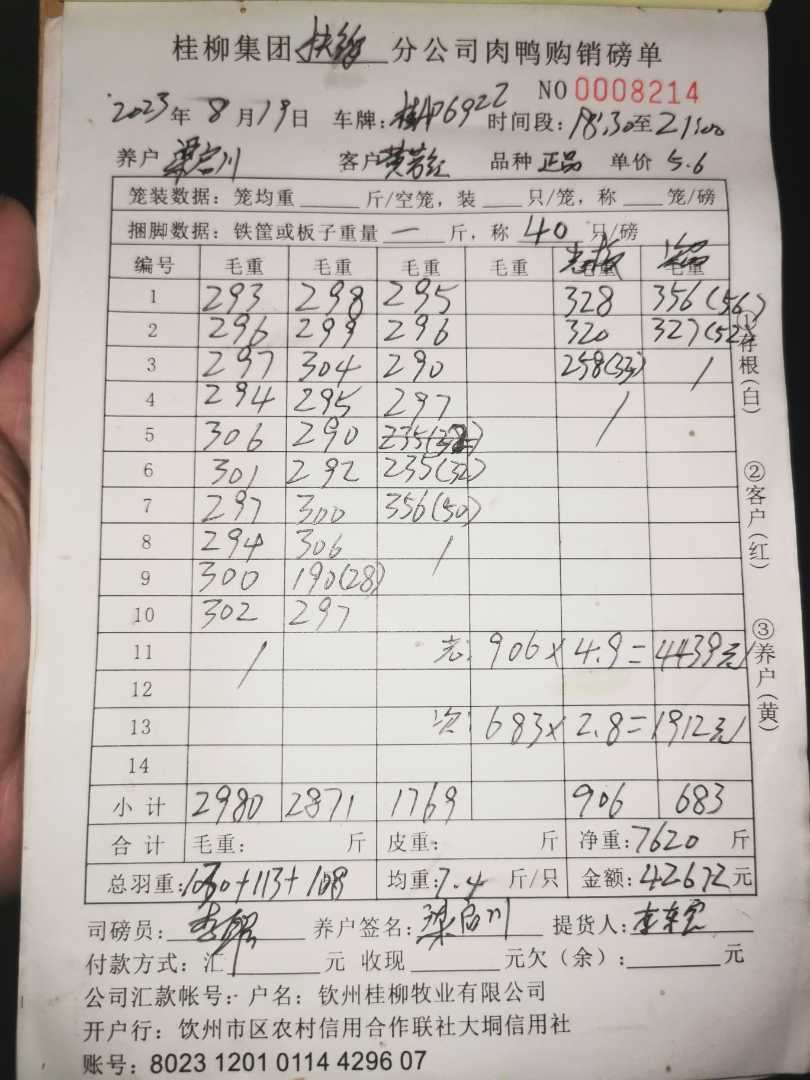 桂柳集团扶绥分公司肉鸭购销磅单
NO 0008214
2023年8月19日 车牌:桂AP6922 时间段:18:30至21:00
养户 梁启川 客户 黄芳红 品种 正品 单价 5.6
笼装数据: 笼均重 斤/空笼, 装 只/笼, 称 笼/磅
捆脚数据: 铁筐或板子重量 一 斤, 称 40 只/磅
编号 毛重 毛重 毛重 毛重 毛重 毛重
1 293 298 295 328 356(56)
2 296 299 296 320 327(52)
3 297 304 290 258(33) /
4 294 295 297 /
5 306 290
6 301 292 235(32)
7 297 300 356(50)
8 294 306 /
9 300 190(28)
10 302 297
11 / 老: 906×4.9=4439元/
12
13 次: 683×2.8=1912元/
14
小计 2980 2871 1769 906 683
合计 毛重: 斤 皮重: 斤 净重:7620 斤
总羽重:1030+113+108 均重:7.4 斤/只 金额:42672元
司磅员: 养户签名:梁启川 提货人:
付款方式: 汇 元 收现 元欠(余): 元
公司汇款帐号: 户名: 钦州桂柳牧业有限公司
开户行: 饮州市区农村信用合作联社大垌信用社
账号: 8023 1201 0114 4296 07
①存根(白)
②客户(红)
③养户(黄)